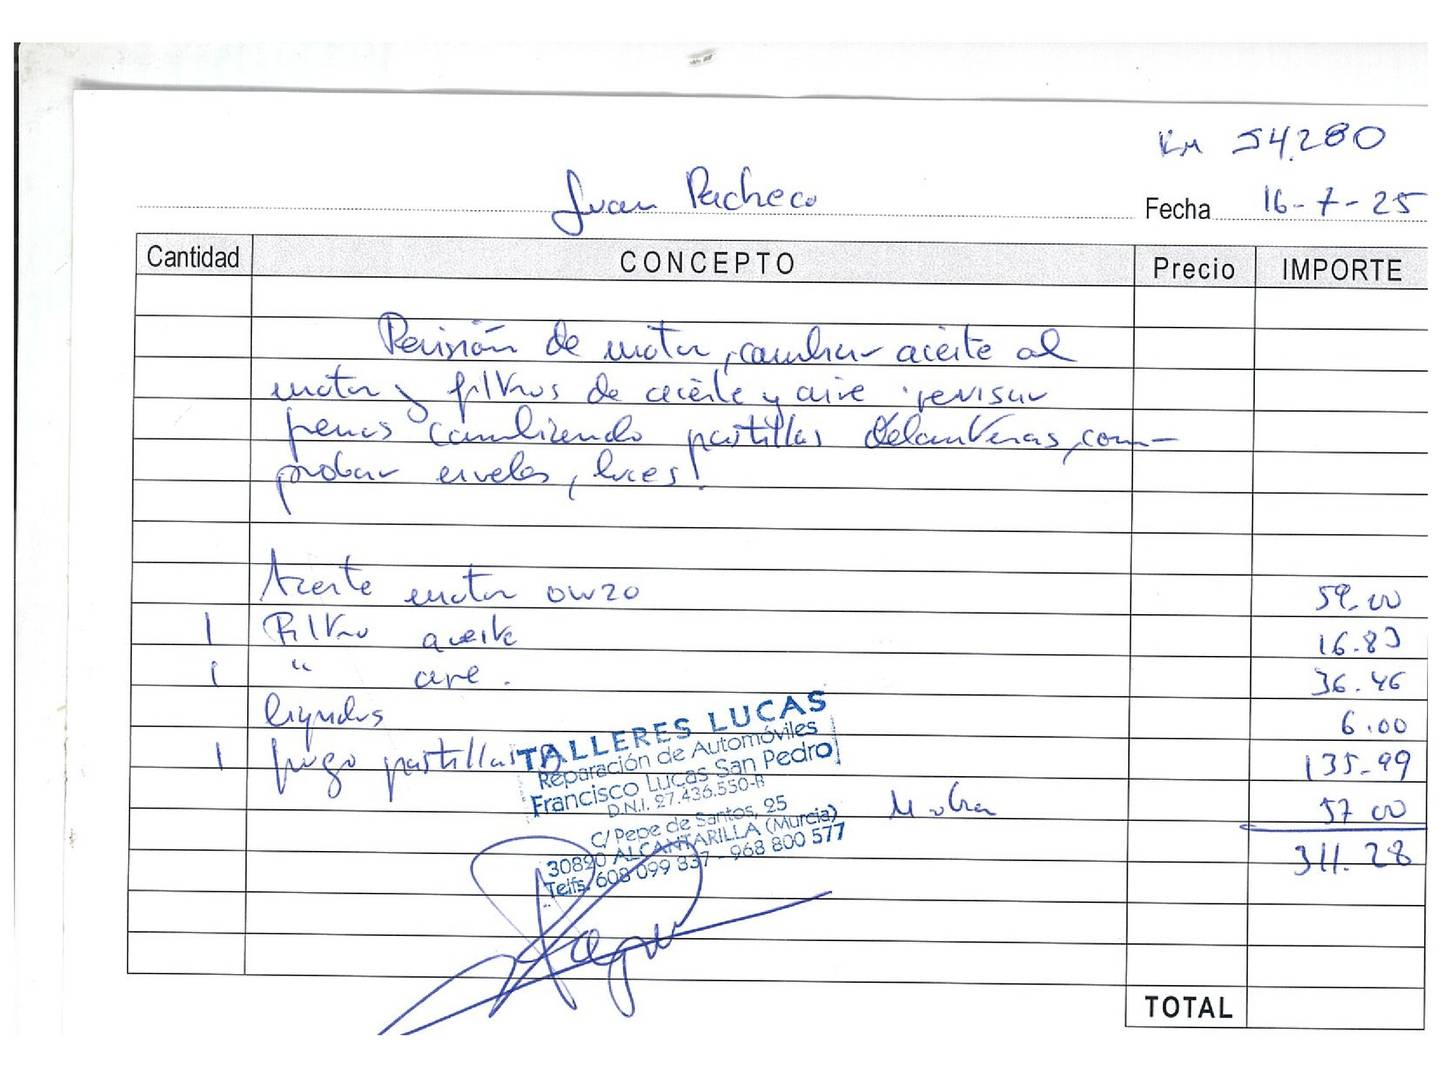 KM 54.280
Juan Pacheco
Fecha 16-7-25
Cantidad CONCEPTO Precio IMPORTE
Revisión de motor, cambiar aceite al
motor y filtros de aceite y aire revisar
frenos cambiando pastillas delanteras, com-
probar niveles, luces!
Aceite motor 0W20 59.00
1 Filtro aceite 16.83
1 " aire. 36.46
liquidos 6.00
1 juego pastillas 135.99
M obra 57 00
311.28
TALLERES LUCAS
Reparación de Automóviles
Francisco Lucas San Pedro
D.N.I. 27.436.550-R
C/ Pepe de Santos, 25
30820 ALCANTARILLA (Murcia)
Telfs. 608 099 837 - 968 800 577
TOTAL